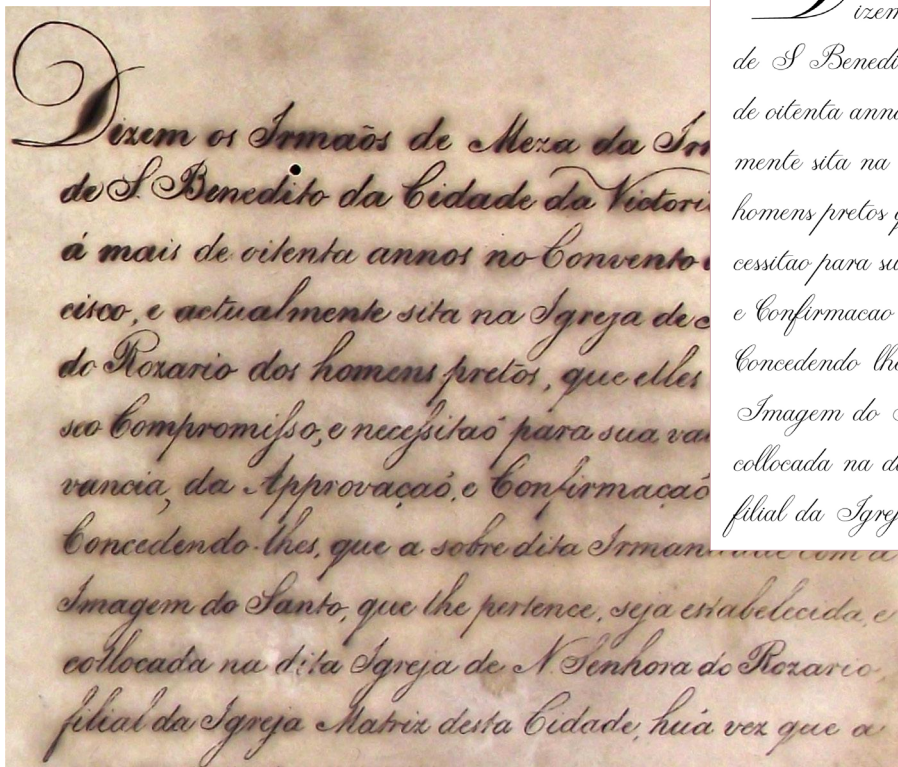 Dizem os Irmaõs de Meza da Irm
de S. Benedito da Cidade da Victori
á mais de oitenta annos no Convento
cisco, e actualmente sita na Igreja de
do Rozario dos homens pretos, que elles
seo Compromisso, e necessitaó para sua va
vancia, da Approvaçaó, e Confirmaçaó
Concedendo-lhes, que a sobre dita Irman com a
Imagem do Santo, que lhe pertence, seja estabelecida, e
collocada na dita Igreja de N. Senhora do Rozario,
filial da Igreja Matriz desta Cidade, huá vez que a
Dizem
de S Benedi
de oitenta ann
mente sita na
homens pretos q
cessitao para su
e Confirmacao
Concedendo lhe
Imagem do
collocada na d
filial da Igrej